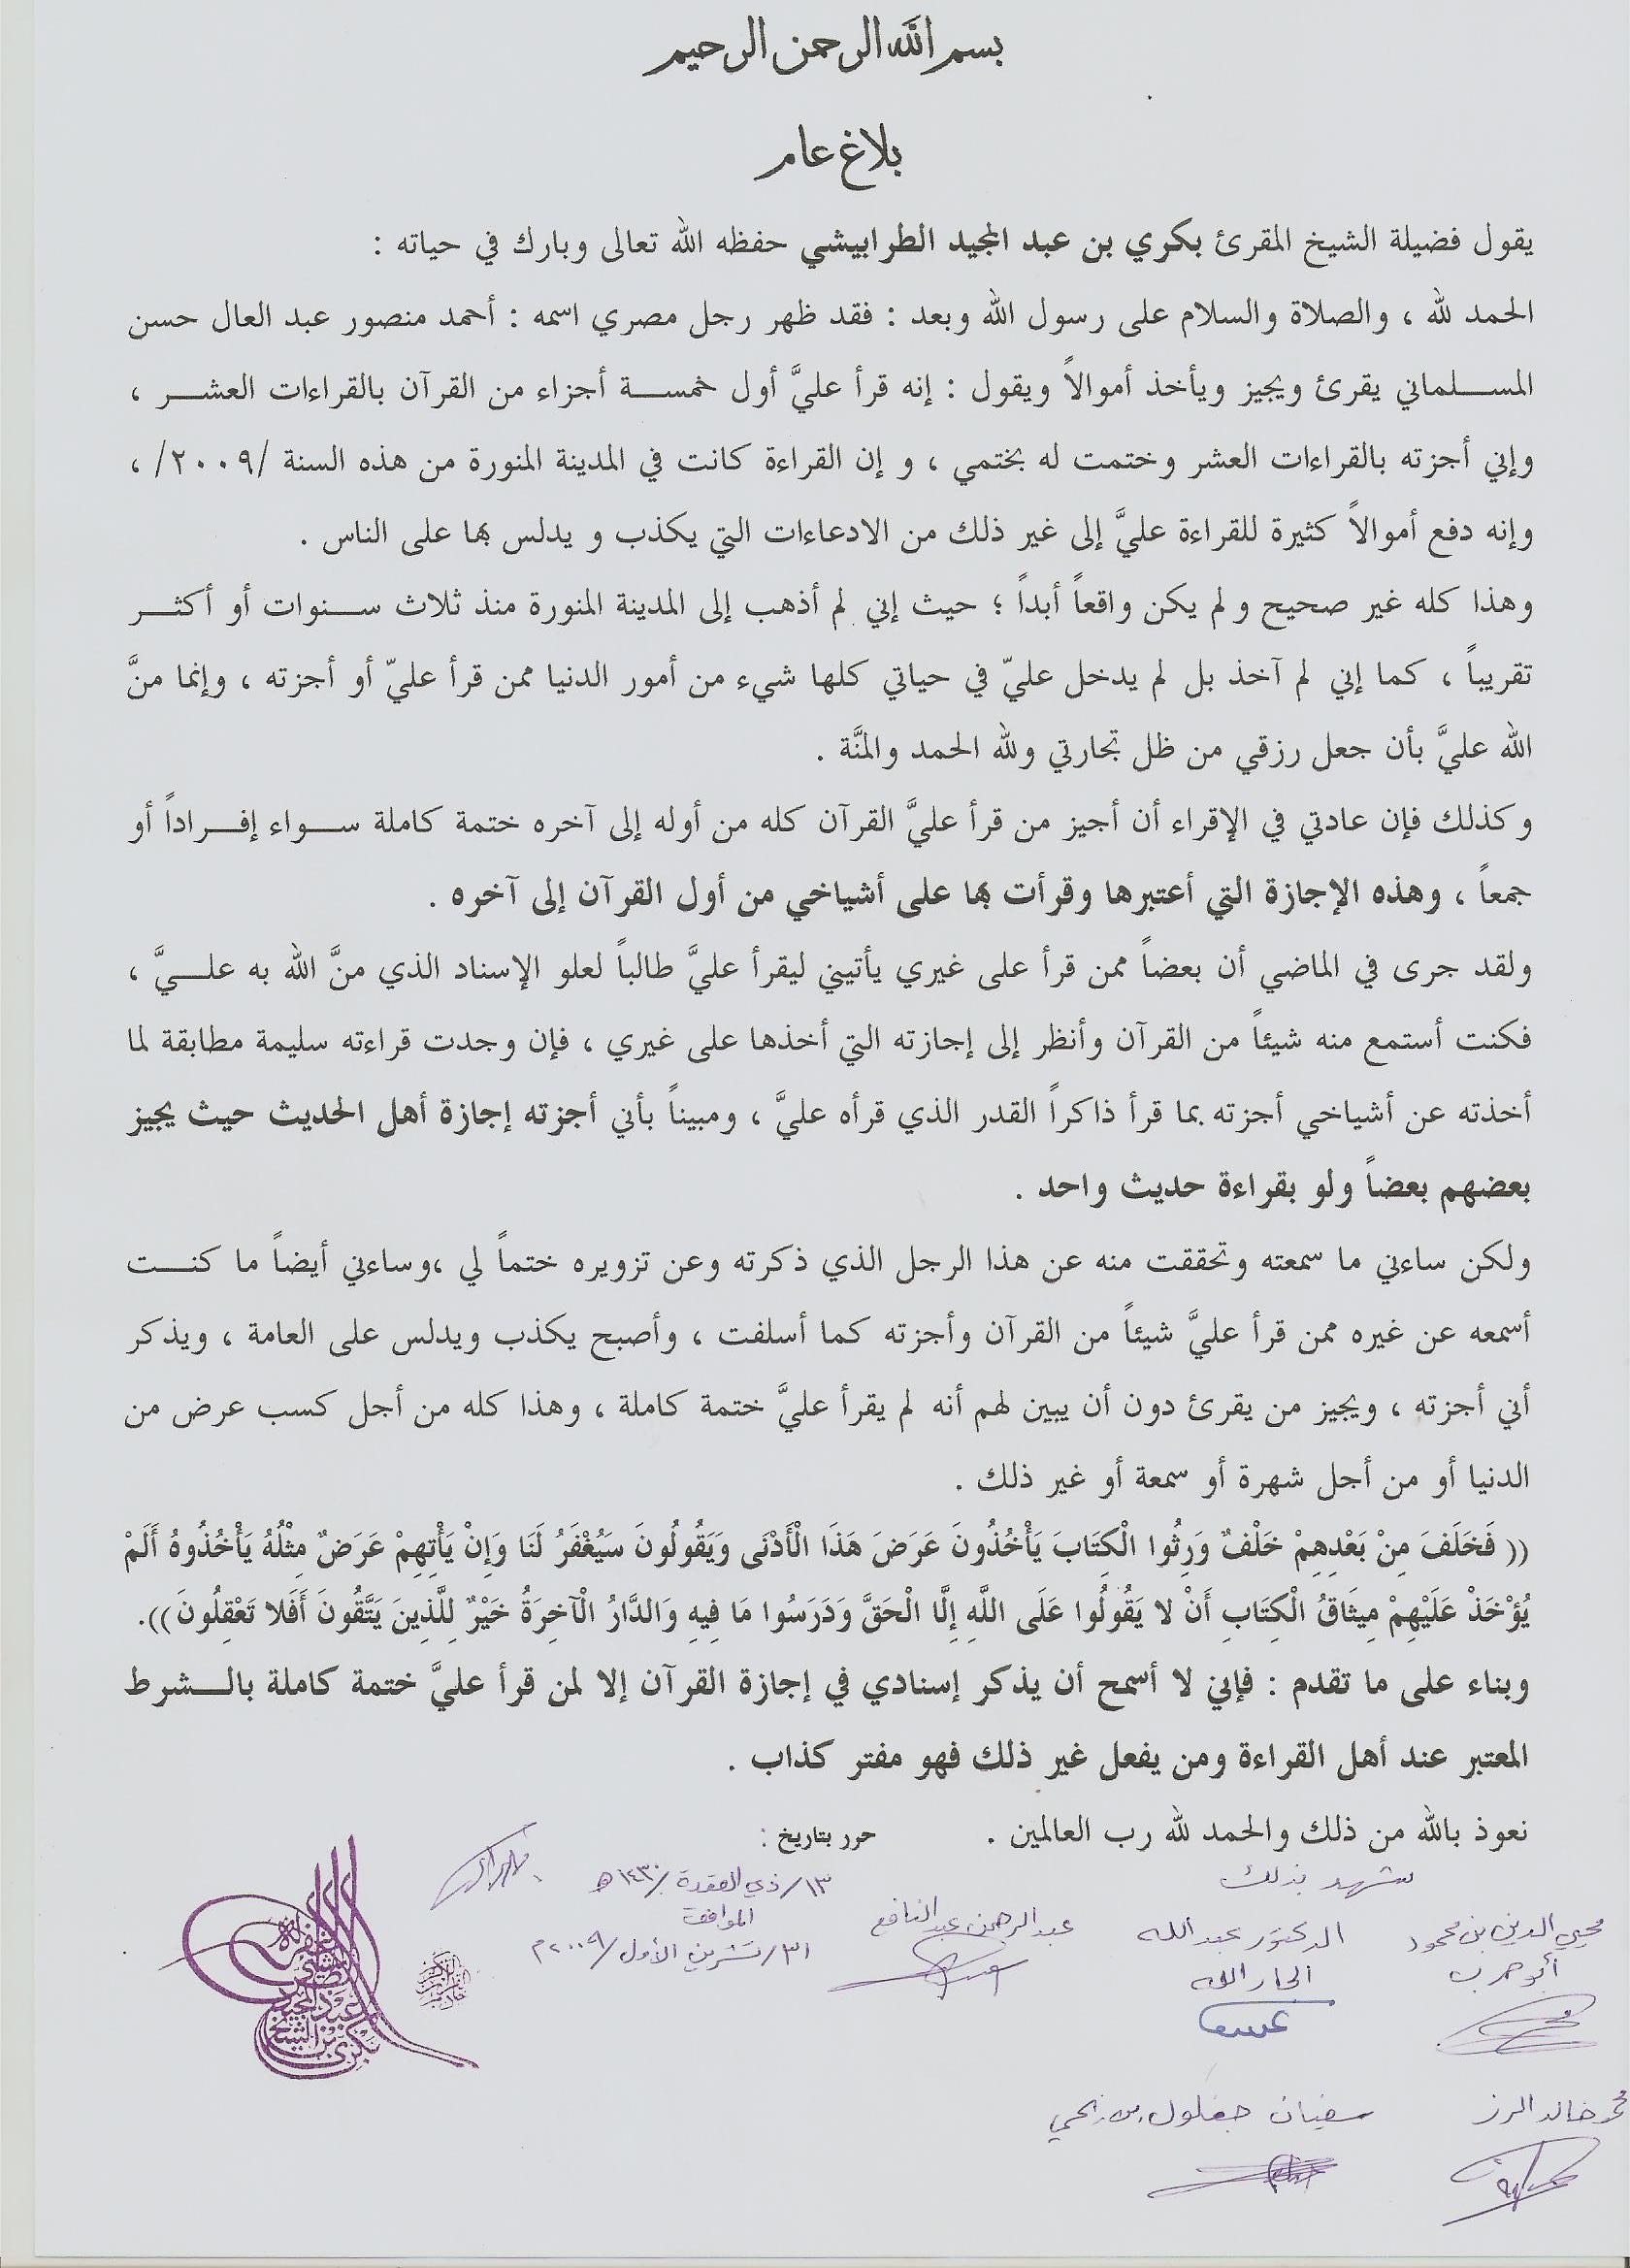 بسم الله الرحمن الرحيم
بلاغ عام
يقول فضيلة الشيخ المقرئ بكري بن عبد المجيد الطرابيشي حفظه الله تعالى وبارك في حياته :
الحمد لله ، والصلاة والسلام على رسول الله وبعد : فقد ظهر رجل مصري اسمه : أحمد منصور عبد العال حسن
المسلماني يقرئ ويجيز ويأخذ أموالاً ويقول : إنه قرأ عليَّ أول خمسة أجزاء من القرآن بالقراءات العشر ،
وإني أجزته بالقراءات العشر وختمت له بختمي ، و إن القراءة كانت في المدينة المنورة من هذه السنة /٢٠٠٩/ ،
وإنه دفع أموالاً كثيرة للقراءة عليَّ إلى غير ذلك من الادعاءات التي يكذب و يدلس بها على الناس .
وهذا كله غير صحيح و لم يكن واقعاً أبداً ؛ حيث إني لم أذهب إلى المدينة المنورة منذ ثلاث سنوات أو أكثر
تقريباً ، كما إني لم آخذ بل لم يدخل عليّ في حياتي كلها شيء من أمور الدنيا ممن قرأ عليّ أو أجزته ، وإنما منَّ
الله عليَّ بأن جعل رزقي من ظل تجارتي ولله الحمد والمنَّة .
و كذلك فإن عادتي في الإقراء أن أجيز من قرأ عليَّ القرآن كله من أوله إلى آخره ختمة كاملة سواء إفراداً أو
جمعاً ، وهذه الإجازة التي أعتبرها وقرأت بها على أشياخي من أول القرآن إلى آخره .
ولقد جرى في الماضي أن بعضاً ممن قرأ على غيري يأتيني ليقرأ عليَّ طالباً لعلو الإسناد الذي منَّ الله به عليَّ ،
فكنت أستمع منه شيئاً من القرآن وأنظر إلى إجازته التي أخذها على غيري ، فإن وجدت قراءته سليمة مطابقة لما
أخذته عن أشياخي أجزته بما قرأ ذاكراً القدر الذي قرأه عليَّ ، ومبيناً بأني أجزته إجازة أهل الحديث حيث يجيز
بعضهم بعضاً ولو بقراءة حديث واحد .
ولكن ساءني ما سمعته وتحققت منه عن هذا الرجل الذي ذكرته وعن تزويره ختماً لي ،وساءني أيضاً ما كنت
أسمعه عن غيره ممن قرأ عليَّ شيئاً من القرآن وأجزته كما أسلفت ، وأصبح يكذب ويدلس على العامة ، ويذكر
أني أجزته ، ويجيز من يقرئ دون أن يبين لهم أنه لم يقرأ عليَّ ختمة كاملة ، وهذا كله من أجل كسب عرض من
الدنيا أو من أجل شهرة أو سمعة أو غير ذلك .
(( فَخَلَفَ مِنْ بَعْدِهِمْ خَلْفٌ وَرِثُوا الْكِتَابَ يَأْخُذُونَ عَرَضَ هَذَا الْأَدْنَى وَيَقُولُونَ سَيُغْفَرُ لَنَا وَإِنْ يَأْتِهِمْ عَرَضٌ مِثْلُهُ يَأْخُذُوهُ أَلَمْ
يُؤْخَذْ عَلَيْهِمْ مِيثَاقُ الْكِتَابِ أَنْ لا يَقُولُوا عَلَى اللَّهِ إِلَّا الْحَقَّ وَدَرَسُوا مَا فِيهِ وَالدَّارُ الْآخِرَةُ خَيْرٌ لِلَّذِينَ يَتَّقُونَ أَفَلا تَعْقِلُونَ)).
وبناء على ما تقدم : فإني لا أسمح أن يذكر إسنادي في إجازة القرآن إلا لمن قرأ عليَّ ختمة كاملة بالشرط
المعتبر عند أهل القراءة ومن يفعل غير ذلك فهو مفتر كذاب .
نعوذ بالله من ذلك والحمد لله رب العالمين . حرر بتاريخ :
١٣/ذي القعدة/١٤٣٠ﻫ
الموافق
٣١/تشرين الأول/٢٠٠٩م
شهد بذلك
محيي الدين بن محمود
أبو حرب
الدكتور عبد الله
الجار الله
عبد الرحمن عبد النافع
محمد خالد الرز
سفيان جعلول بن
بكري بن الشيخ
عبد المجيد
الطرابيشي